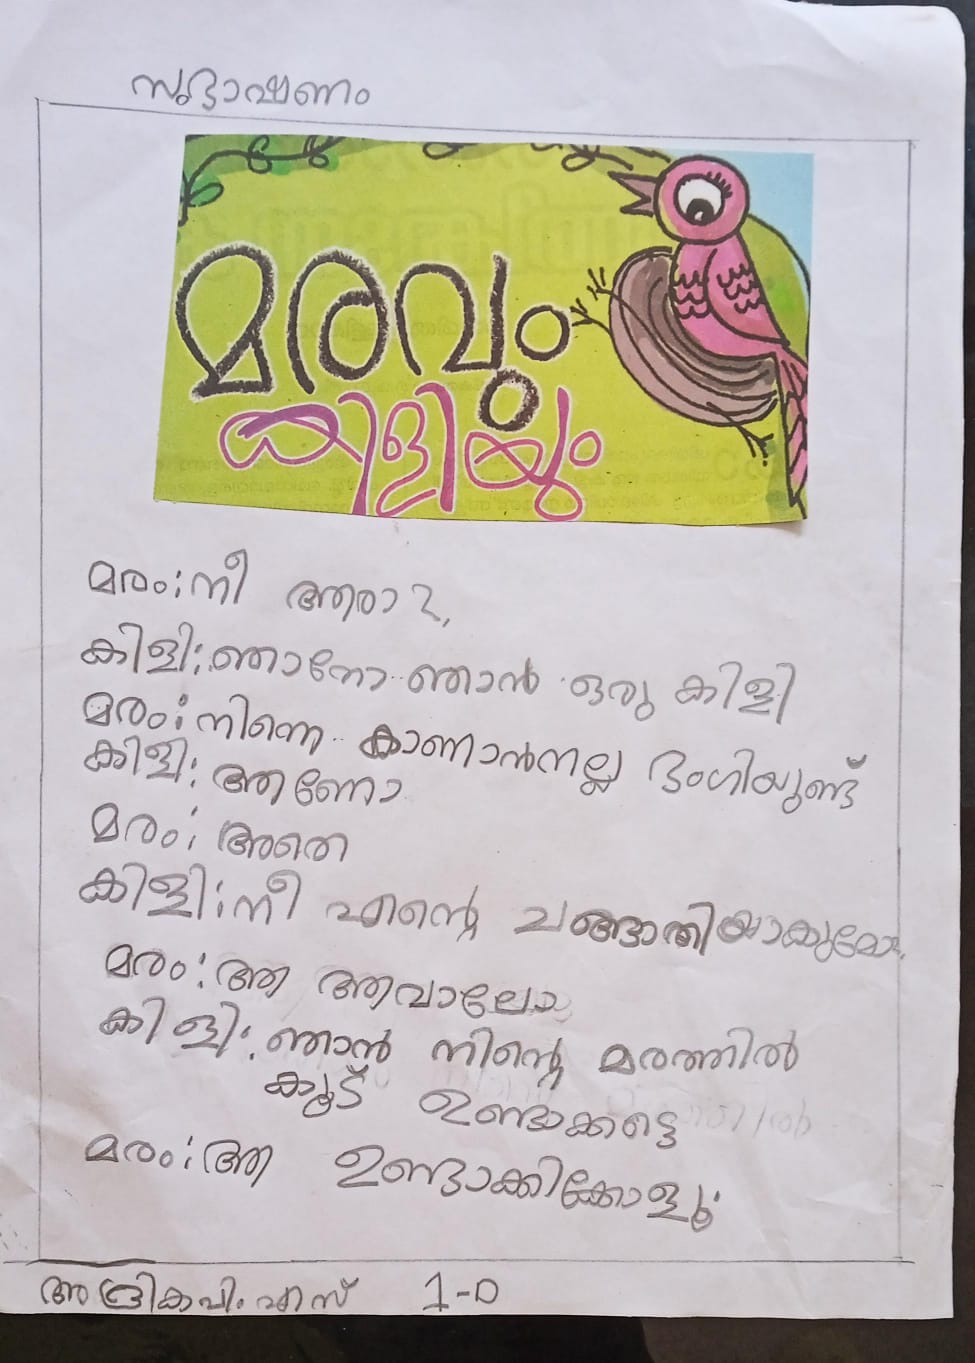 സംഭാഷണം
മരവും
കിളിയും
മരം: നീ ആരാ?
കിളി: ഞാനോ ഞാൻ ഒരു കിളി
മരം: നിന്നെ കാണാൻനല്ല ഭംഗിയുണ്ട്
കിളി: ആണോ
മരം: അതെ
കിളി: നീ എന്റെ ചങ്ങാതിയാകുമോ
മരം: ആ ആവാലോ
കിളി: ഞാൻ നിന്റെ മരത്തിൽ
കൂട് ഉണ്ടാക്കട്ടെ
മരം: ആ ഉണ്ടാക്കിക്കോളൂ
പി. എസ് 1-D